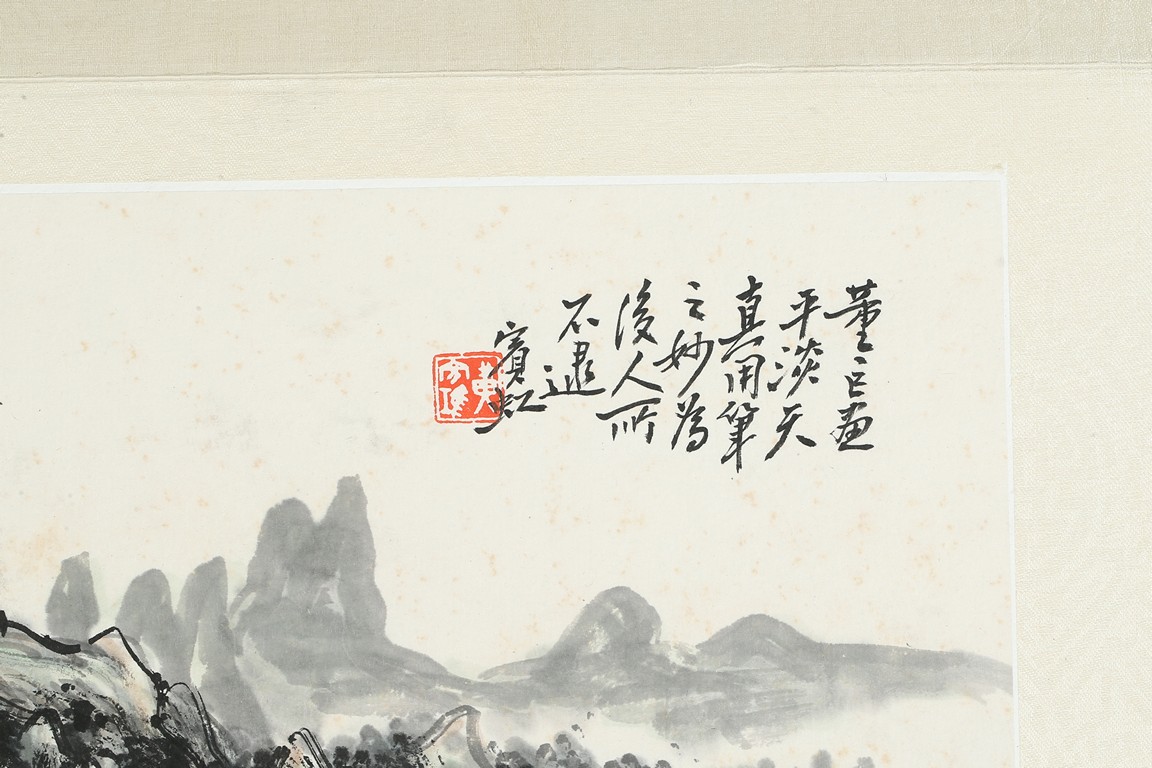 董巨画
平淡天
真用筆
之妙為
後人所
不逮
賓虹
黄賓虹